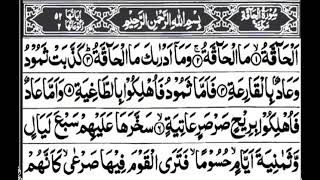 سُوْرَةُ الْحَآقَّةِ مَكِّيَّةٌ
بِسْمِ اللّٰهِ الرَّحْمٰنِ الرَّحِيْمِ
اٰيَاتُهَا ٥٢
اَلْحَآقَّةُ ١ مَا الْحَآقَّةُ ٢ وَمَآ اَدْرٰىكَ مَا الْحَآقَّةُ ٣ كَذَّبَتْ ثَمُوْدُ
وَعَادٌۢ بِالْقَارِعَةِ ٤ فَاَمَّا ثَمُوْدُ فَاُهْلِكُوْا بِالطَّاغِيَةِ ٥ وَاَمَّا عَادٌ
فَاُهْلِكُوْا بِرِيْحٍ صَرْصَرٍ عَاتِيَةٍ ٦ سَخَّرَهَا عَلَيْهِمْ سَبْعَ لَيَالٍ
وَّثَمٰنِيَةَ اَيَّامٍ حُسُوْمًا فَتَرَى الْقَوْمَ فِيْهَا صَرْعٰى كَاَنَّهُمْ